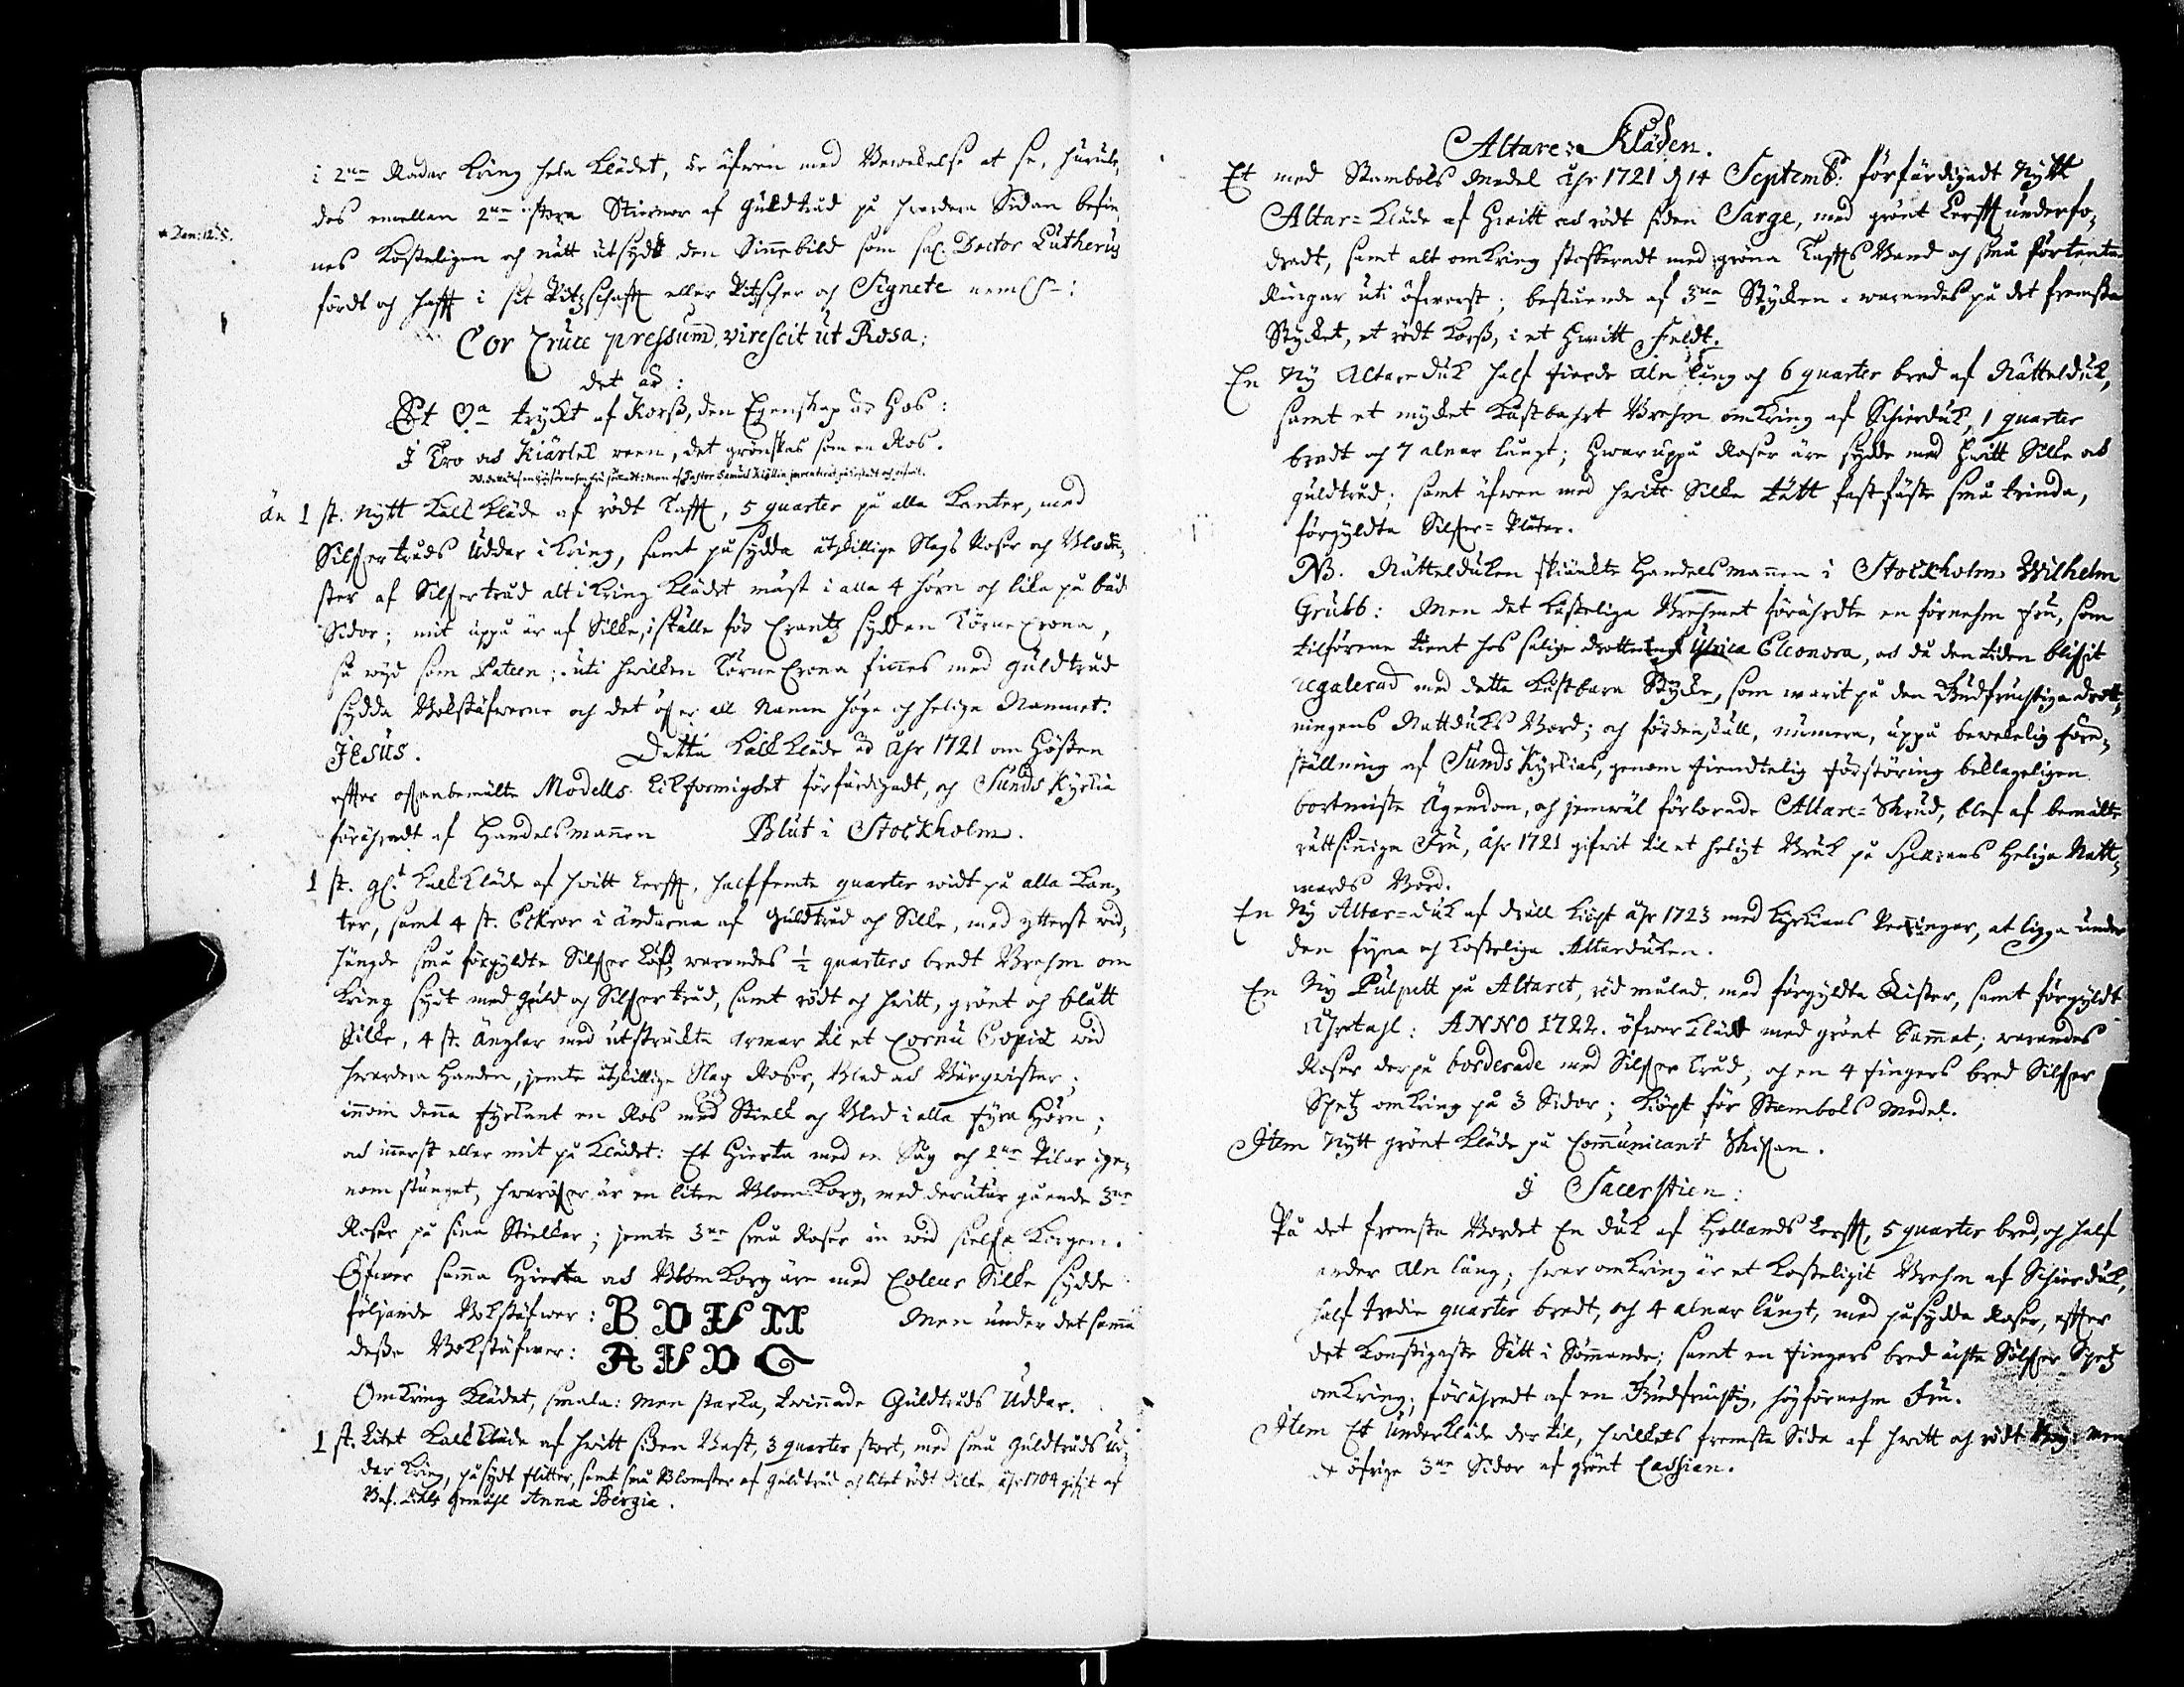 i 2ne Rader kring hela Klädet, är äfwen med Bewekelse at se, huru le-
des emellan 2ne stora Stiernor af Guldtråd på hwardera Sidan befin-
* Dan: 12: 3.
nes Kosteligen och nätt utsydt den Sinnebild som sal. Doctor Lutherus
fördt och hafft i sit Pitzschafft eller Pitzscher och Signete neml:
Cor Cruce pressum, virescit ut Rosa;
det är:
Et ♡a tryckt af Korss, den Egenskap är hos:
I Tro och Kiärlek reen, det grönskas som en Ros.
än 1 st. Nytt Kalk Kläde af rödt Tafft, 5 quarter på alla Kanter, med
Silfwertråds Uddar i kring, samt påsydda åtskillige Slags Roser och Blom-
ster af Silfwertråd alt i kring Klädet mäst i alla 4 hörn och lika på bäd
Sidor; mit uppå är af Silke, i ställe för Crantz sydd en Törne Crona,
så wyd som Pateen; uti hwilken Törne Crona finnes med Guldtråd
sydda Bokstäfwerne och det öfwer all Namn höga och helige Namnet:
JESUS. Detta Kalk Kläde är Åhr 1721 om Hösten
effter ofwanbemälte Modells Likformighet förfärdigadt, och Sunds Kyrkia
förährat af Handelsmannen Blut i Stockholm.
1 st. gl:t Kalk Kläde af hwitt Lerfft, half femte quarter widt på alla Kan-
ter, samt 4 st. Eckror i ändarna af Guldtråd och Silke, med ytterst wid-
hängde små förgyldte Silfwer Löf; warandes ½ quarters bredt Brehm om
kring sydt med Guld och Silfwertråd, samt rödt och hwitt, grönt och blått
Silke, 4 st. Änglar med utsträckte Armar til et Cornu Copiæ wid
hwardera Handen, jemte åtskillige Slag Roser, Blad och Bärqwistar;
innom denna fyrkant en Ros med Stielk och Blad i alla fyra Hörn;
och innerst eller mit på Klädet: Et Hierta med en Såg och 2ne Pilar ige-
nom stunget, hwaröfwer är en liten Blom Korg, med derutur gående 3ne
Roser på sina Stielkar; jemte 3ne små Roser in wid sielfwa Korgen.
Öfwer samma Hierta och Blom Korg äre med Coleur Silke sydde
följande Bokstäfwer: B D I S M Men under det samma
desse Bokstäfwer: A I S D C
Omkring Klädet, smala: men starka, twinnade Guldtråds Uddar.
1 st. Litet Kalk Kläde af hwitt siden Bast, 3 quarter stort, med små Guldtråds Ud-
dar kring, påsydt flitter, samt små Blomster af Guldtråd och litet rödt Silke åhr 1704 gifwit af
Anna Bergia.
Altare-Kläden.
Et med Stambols Medel åhr 1721 d 14 Septemb: förfärdigadt Nytt
Altar-Kläde af Hwitt och rödt siden Sarge, med grönt Lerfft underfo-
dradt, samt alt omkring stofferadt med gröna Taffts Band och små förtenta
Ringar uti öfwerst; bestående af 3ne Stycken, warandes på det fremsta
Stycket, et rödt Korss, i et Hwitt Feldt.
En Ny Altareduk half fierde Aln lång och 6 quarter bred af Nätteldúk,
samt et mycket Kåstbahrt Brehm omkring af Schierduk, 1 quarter
bredt och 7 alnar långt; hwaruppå Roser äre sydde med hwitt Silke och
guldtråd; samt äfwen med hwitt Silke tätt fastfäste små trinda,
förgyldta Silfwer-Plåtar.
NB. Nätteldúken skiänkte Handelsmannen i Stockholm Wilhelm
Grubb: Men det Kosteliga Brehmet förährdte en förnehm Fru, som
tilförene tient hos salige Drottning Ulrica Eleonora, och då den tiden blifwit
regalerad med detta kåstbara Stycke, som warit på den Gudfruchtiga Drott-
ningens Nattduks Bord; och fördenskull, numera, uppå bewekelig före-
ställning af Sunds Kyrkias, genom fiendtelig förstöring beklageligen
bortmiste Ägendom, och jemwäl förlorade Altare-Skrud, blef af bemälte
rättsinniga Fru, åhr 1721 gifwit til et heligt Bruk på Herrans Heliga Natt-
wards Bord.
En Ny Altar-duk af Dräll kiöpt åhr 1723 med Kyrkians Penningar, at ligga under
den fyna och kosteliga Altarduken.
En Ny Pulpett på Altaret, röd målad, med förgyldta Lister, samt förgyldt
Åhretahl: ANNO 1722. öfwerklädt med grönt Sammet; warandes
Roser derpå borderade med Silfwer tråd; och en 4 fingers bred Silfwer
Spetz omkring på 3 Sidor; kiöpt för Stambols Medel.
Item Nytt grönt Kläde på Communicant Skifwan.
I Sacerstien:
På det fremsta Bordet En duk af Hollands Lerfft, 5 quarter bred, och half
ander Aln lång; hwar omkring är et kosteligit Brehm af Schierduk,
half tredie quarter bredt, och 4 alnar långt, med påsydda Roser, effter
det konstigaste Sätt i Sömmande; samt en Fingers bred ächta Silfwer Spetz
omkring; förährat af en Gudfruchtig, högförnehm Fru.
Item Et Underkläde der til, hwilkets fremsta Sida af hwitt och rödt men
de öfrige 3ne Sidor af grönt Cassian.